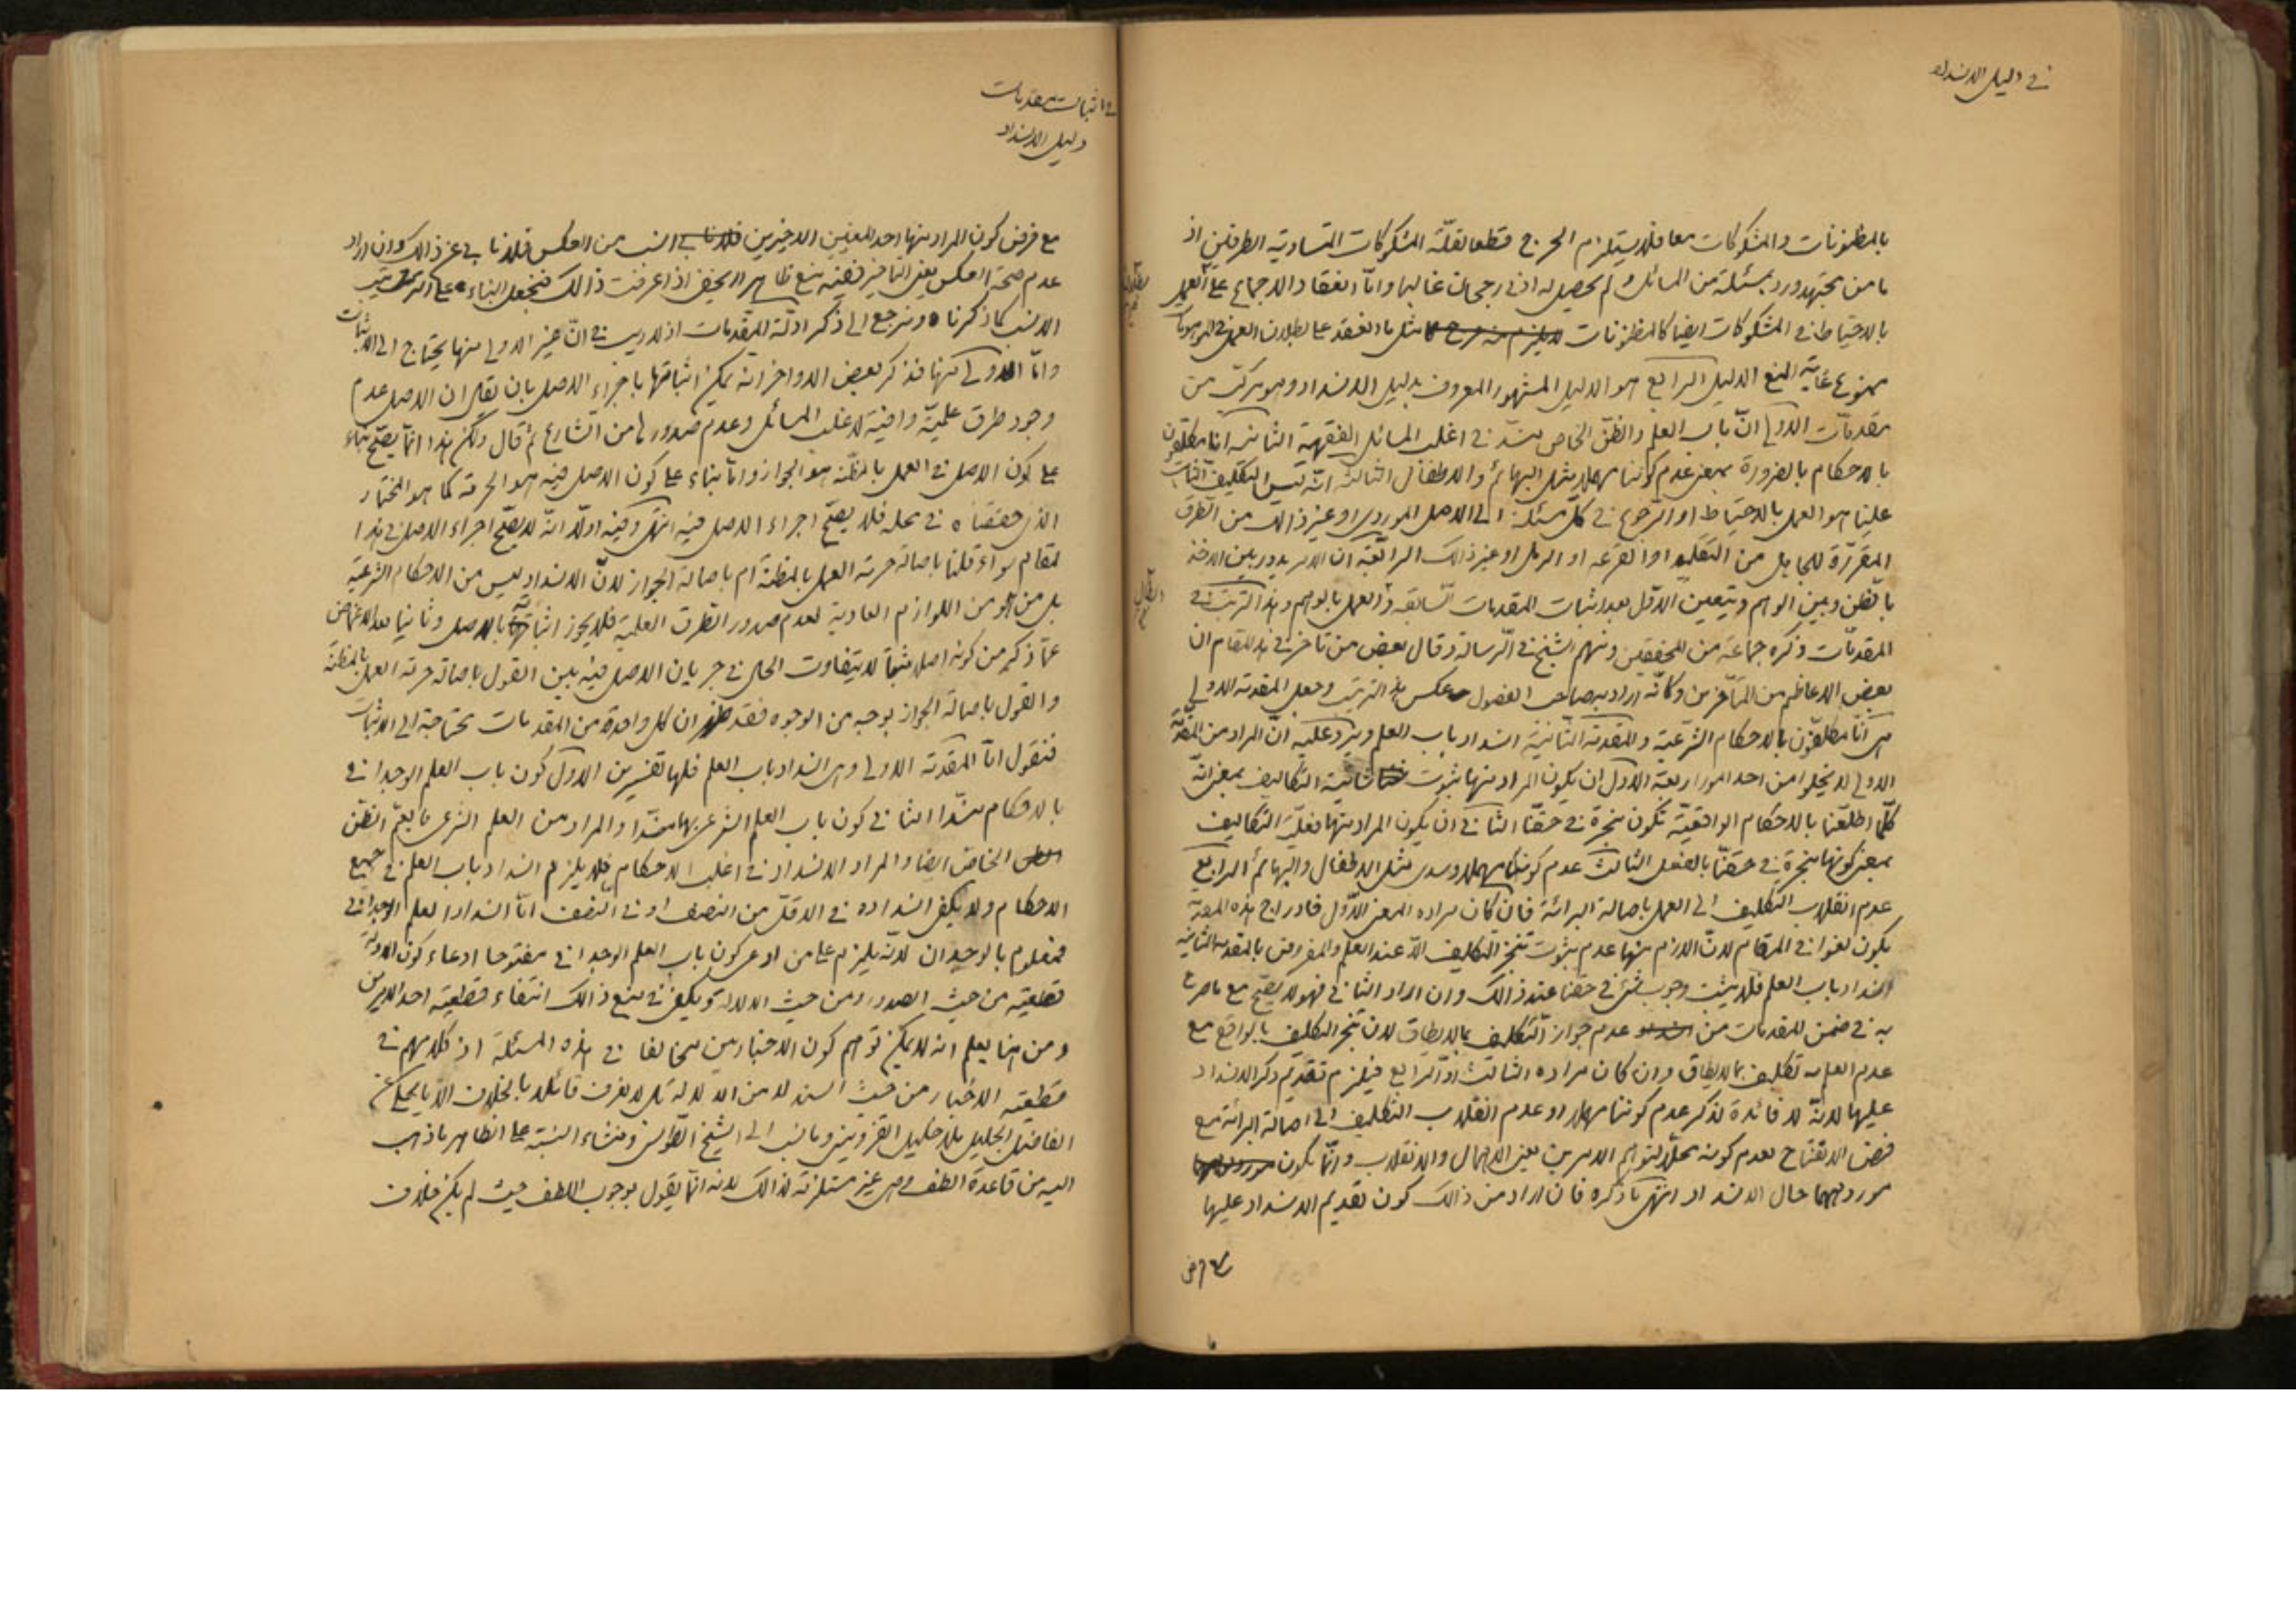 في دليل الانسداد
بالمظنونات والمشكوكات معا فلا يستلزم الحرج قطعا لقلّة المشكوكات المتساوية الطرفين اذ
ما من مجتهد ورد بمسئلة من المسائل ولم يحصل له ادنى رجحان غالبا وامّا انعقاد الاجماع على العمل
بالاحتياط في المشكوكات ايضا كالمظنونات مثل ما انعقد على بطلان العمل في الموهومات
ممنوع غاية المنع الدليل الرابع هو الدليل المشهور المعروف بدليل الانسداد وهو مركب من
مقدمات الاولى انّ باب العلم والظنّ الخاص منسدّ في اغلب المسائل الفقهية الثانية انا مكلّفون
بالاحكام بالضرورة بمعنى عدم كوننا مهملا مثل البهائم والاطفال الثالثة انّه ليس التكليف الثابت
علينا هو العمل بالاحتياط او الرجوع في كلّ مسئلة الى الاصل الموردى او غير ذالك من الطرق
المقرّرة للجاهل من التقليد او القرعه او الرمل او غير ذالك الرابعة ان الامر يدور بين الاخذ
بالظن وبين الوهم ويتعين الاوّل بعد اثبات المقدمات السّابقة والعمل بالوهم وهذا الترتيب في
المقدمّات ذكره جماعة من المحققين ومنهم الشيخ في الرّسالة وقال بعض من تاخر في هذا المقام ان
بعض الاعاظم من المتأخّرين وكأنّه اراد به صاحب الفصول عكس هذا الترتيب وجعل المقدمة الاولى
هى انّا مكلفون بالاحكام الشرعية والمقدمة الثّانية انسداد باب العلم ويرد عليه انّ المراد من المقدّمة
الاولى لا يخلوا من احد امور اربعة الاوّل ان يكون المراد منها ثبوت شانية التكاليف بمعنى انّه
كلّما اطلعنا بالاحكام الواقعيّة تكون منجزة في حقنّا الثانى ان يكون المراد منها فعليّة التكاليف
بمعنى كونها منجزة في حقنّا بالفعل الثالث عدم كوننا مهملا وسدى مثل الاطفال والبهائم الرابع
عدم انقلاب التكليف الى العمل باصالة البرائة فان كان مراده المعنى الاوّل فادراج هذه المقدمة
يكون لغوا في المقام لانّ اللازم منها عدم ثبوت تنجز التكليف الا عند العلم والمفروض بالمقدمة الثانية
انسداد باب العلم فلا يثبت وجوب شىء في حقنا عند ذالك وان اراد الثانى فهو لا يصحّ مع ما صرح
به في ضمن المقدمات من عدم جواز التكليف بما لا يطاق لان تنجز التكليف بالواقع مع
عدم العلم به تكليف بما لا يطاق وان كان مراده الثالث او الرابع فيلزم تقديم ذكر الانسداد
عليها لانّه لا فائدة لذكر عدم كوننا مهملا او عدم انقلاب التكليف الى اصالة البرائة مع
فرض الانفتاح لعدم كونه محلا لتوهم الامرين يعنى الاهمال والانقلاب وانّما يكون
موردهما حال الانسداد انتهى ما ذكره فان اراد من ذالك كون تقديم الانسداد عليها
في اثبات مقدمات
دليل الانسداد
مع فرض كون المراد منها احد المعنيين الاخيرين انسب من العكس فلا نابى عن ذالك وان اراد
عدم صحة العكس يعنى التاخير ففيه منع ظاهر لا يخفى اذا عرفت ذالك فنجعل البناء على الترتيب
الانسب كما ذكرنا ونرجع الى ذكر ادلّة المقدمات اذ لا ريب في انّ غير الاولى منها يحتاج الى الاثبات
وامّا الاولى منها فذكر بعض الاواخر انه يمكن اثباتها باجراء الاصل بان يقال ان الاصل عدم
وجود طرق علميّة وافية لاغلب المسائل وعدم صدورها من الشّارع ثم قال ولكن هذا انّما يصحّ بناء
على كون الاصل في العمل بالمظنّة هو الجواز وامّا بناء على كون الاصل فيه هو الحرمة كما هو المختار
الذى حققناه في محله فلا يصحّ اجراء الاصل فيه انتهى وفيه اولا انّه لا يصّح اجراء الاصل في هذا
المقام سواء قلنا باصالة حرمة العمل بالمظنة ام باصالة الجواز لانّ الانسداد ليس من الاحكام الشرعية
بل من هو من اللوازم العادية لعدم صدور الطرق العلمية فلا يجوز اثباته بالاصل وثانيا بعد الاغماض
عمّا ذكر من كونه اصلا مثبتا لا يتفاوت الحال في جريان الاصل فيه بين القول باصالة حرمة العمل بالمظنة
والقول باصالة الجواز بوجه من الوجوه فقد ظهر ان كل واحدة من المقدمات محتاجة الى الاثبات
فنقول امّا المقدمة الاولى وهى انسداد باب العلم فلها تفسيرين الاوّل كون باب العلم الوجدانى
بالاحكام منسدّا الثانى كون باب العلم الشرعى بها منسدّا والمراد من العلم الشرعى ما يعمّ الظنّ
الخاصّ ايضا والمراد الانسداد في اغلب الاحكام فلا يلزم انسداد باب العلم في جميع
الاحكام ولا يكفى انسداده في الاقلّ من النصف او في النصف امّا انسداد العلم الوجدانى
فمعلوم بالوجدان لانه يلزم على من ادعى كون باب العلم الوجدانى مفتوحا ادعاء كون الادلة
قطعية من حيث الصدور ومن حيث الدلالة ويكفى في منع ذالك انتفاء قطعية احد الامرين
ومن هنا يعلم انه لا يمكن توهم كون الاخباريين مخالفا في هذه المسئلة اذ كلامهم في
قطعية الاخبار من حيث السند لا من الدلالة بل لا نعرف قائلا بالخلاف الّا ما يحكى عن
الفاضل الجليل ملا خليل القزوينى وما نسب الى الشيخ الطّوسى ومنشاء النسبة على الظاهر ما ذهب
اليه من قاعدة اللطف وهى غير مستلزمة لذالك لانه انّما يقول بوجوب اللطف حيث لم يكن خلاف